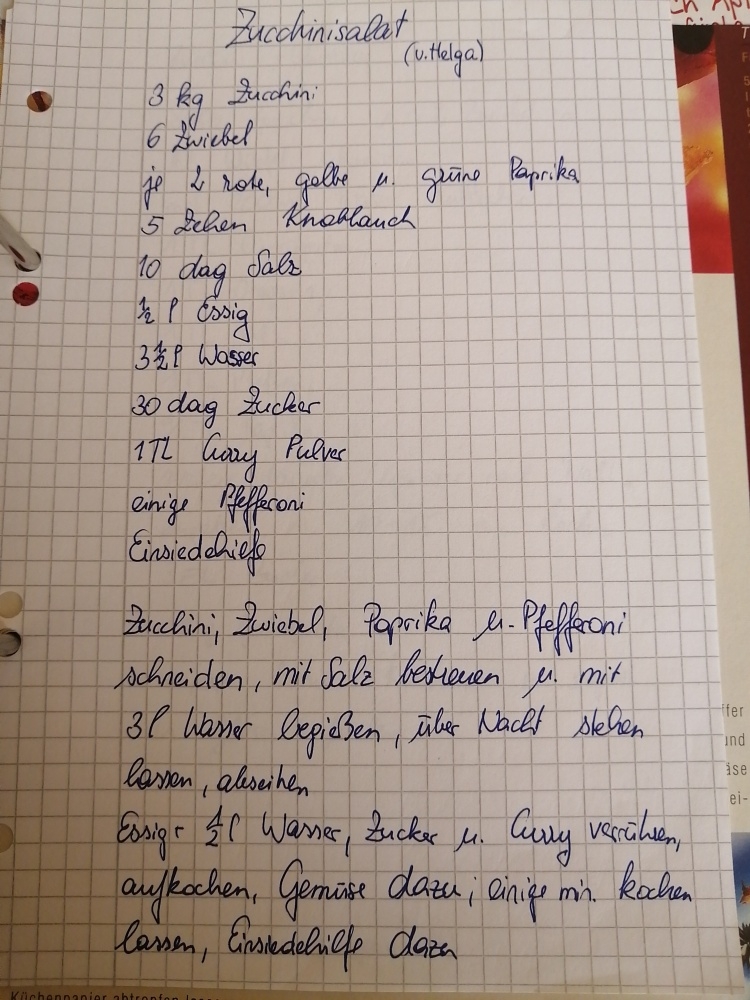 Zucchinisalat
(v. Helga)
3 kg Zucchini
6 Zwiebel
je 2 rote, gelbe u. grüne Paprika
5 Zehen Knoblauch
10 dag Salz
½ l Essig
3½ l Wasser
30 dag Zucker
1 TL Curry Pulver
einige Pfefferoni
Einsiedehilfe
Zucchini, Zwiebel, Paprika u. Pfefferoni
schneiden, mit Salz bestreuen u. mit
3 l Wasser begießen, über Nacht stehen
lassen, abseihen
Essig + ½ l Wasser, Zucker u. Curry verrühren,
aufkochen, Gemüse dazu, einige min. kochen
lassen, Einsiedehilfe dazu
ffer
und
äse
ei-
Küchenpapier abtropfen lass